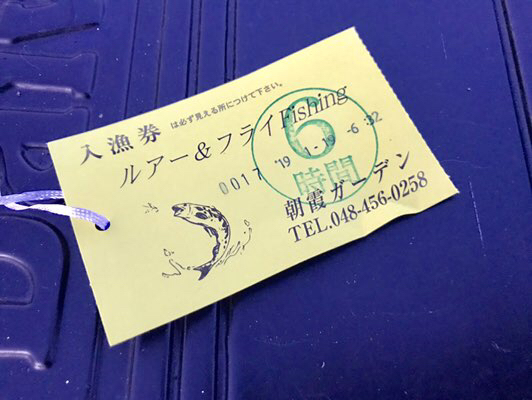 入漁券 は必ず見える所につけて下さい。
ルアー&フライFishing
0017 '19 1-19 -6:32
6
時間
朝霞ガーデン
TEL.048-456-0258